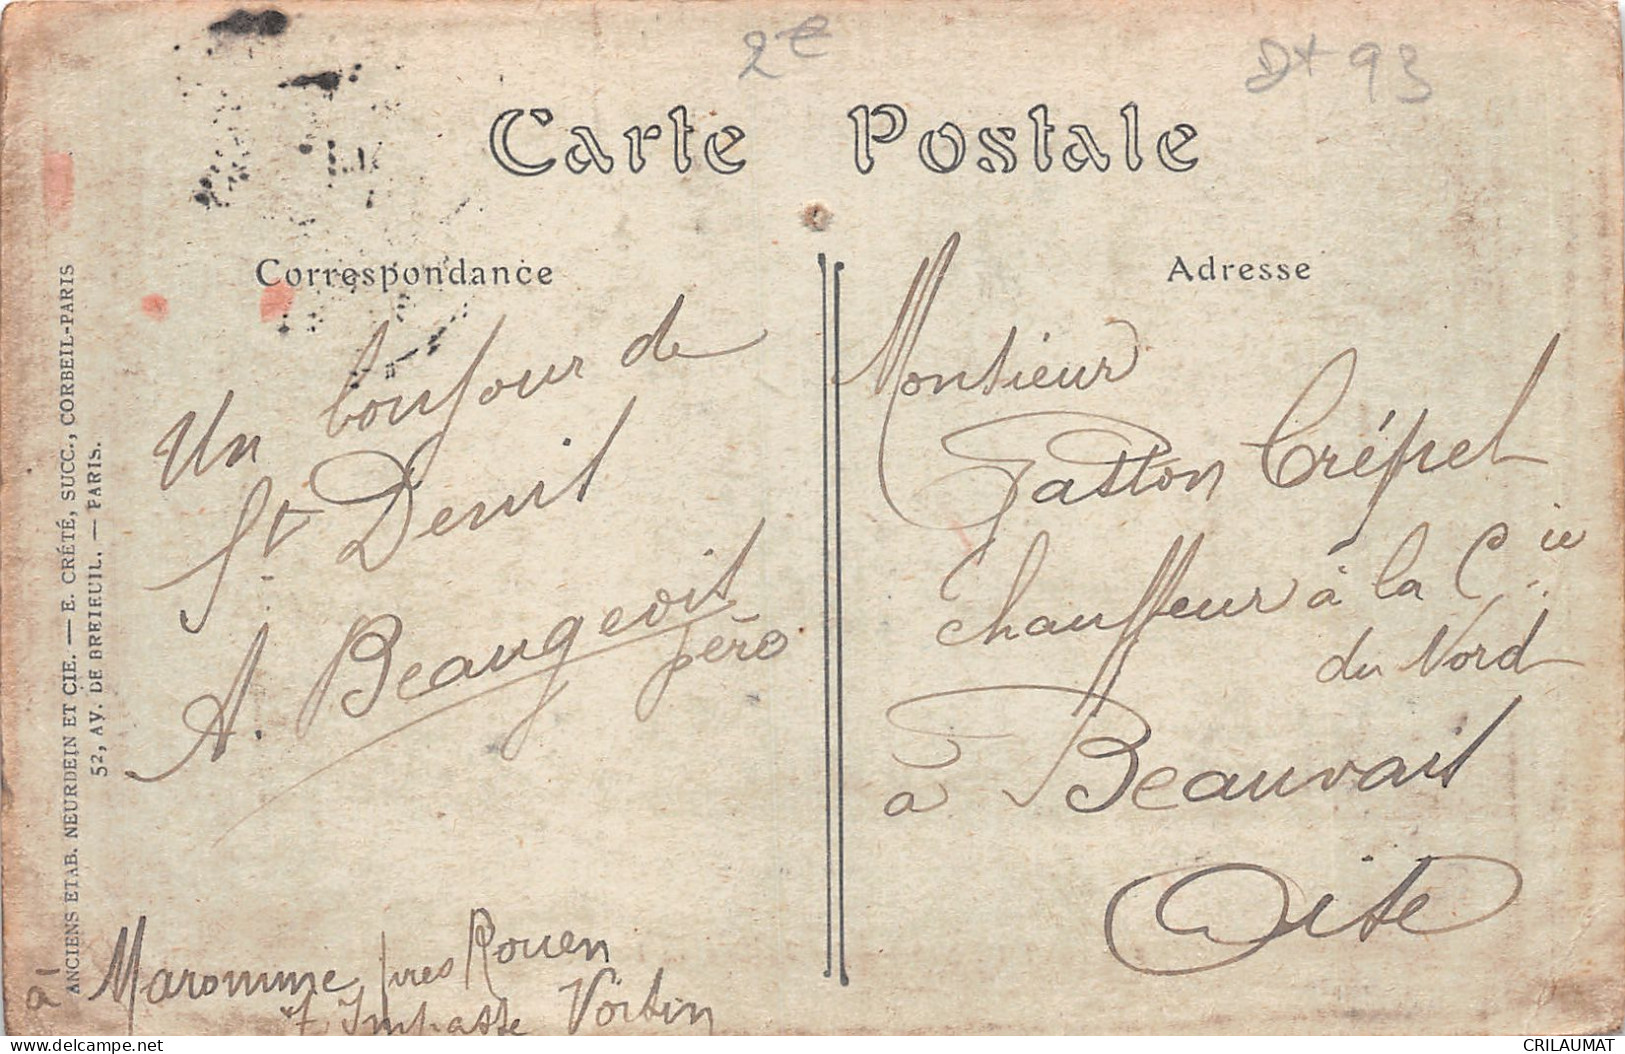 2€
Dt 93
Carte Postale
Correspondance
Adresse
Un bonjour de
St Denis
A. Beaugeois
père
à Maromme près Rouen
7 Impasse Voisin
Monsieur
Gaston Crépel
Chauffeur à la Cie
du Nord
à Beauvais
Oise
ANCIENS ETAB. NEURDEIN ET CIE. — E. CRÉTÉ, SUCC., CORBEIL-PARIS
52, AV. DE BREIEUIL. — PARIS.
CRILAUMAT